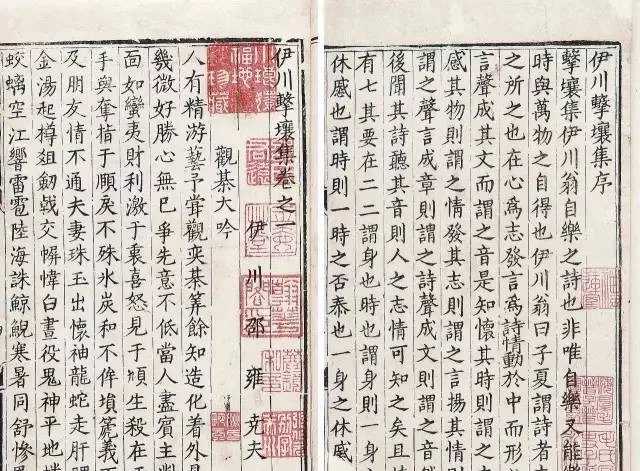 伊川擊壤集序
擊壤集伊川翁自樂之詩也非唯自樂又能
時與萬物之自得也伊川翁曰子夏謂詩者
之所之也在心爲志發言爲詩情動於中而形
言聲成其文而謂之音是知懷其時則謂之
感其物則謂之情發其志則謂之言揚其情則
謂之聲言成章則謂之詩聲成文則謂之音
後聞其詩聽其音則人之志情可知之矣且
有七其要在二二謂身也時也謂身則一身之
休戚也謂時則一時之否泰也一身之休戚
伊川擊壤集卷之一
伊川邵雍堯夫
觀棊大吟
人有精游藝予甞觀奕棊筭餘知造化著外見
幾微好勝心無已爭先意不低當人盡賓主對
面如蠻夷財利激于衷喜怒見于頄生殺在于
手與奪指于頤戾不殊冰炭和不侔塤箎義不
及朋友情不通夫妻珠玉出懷袖龍蛇走肝脾
金湯起樽爼劒戟交幈幃白晝役鬼神平地
蛟螭空江響雷雹陸海誅鯨鯢寒暑同舒慘